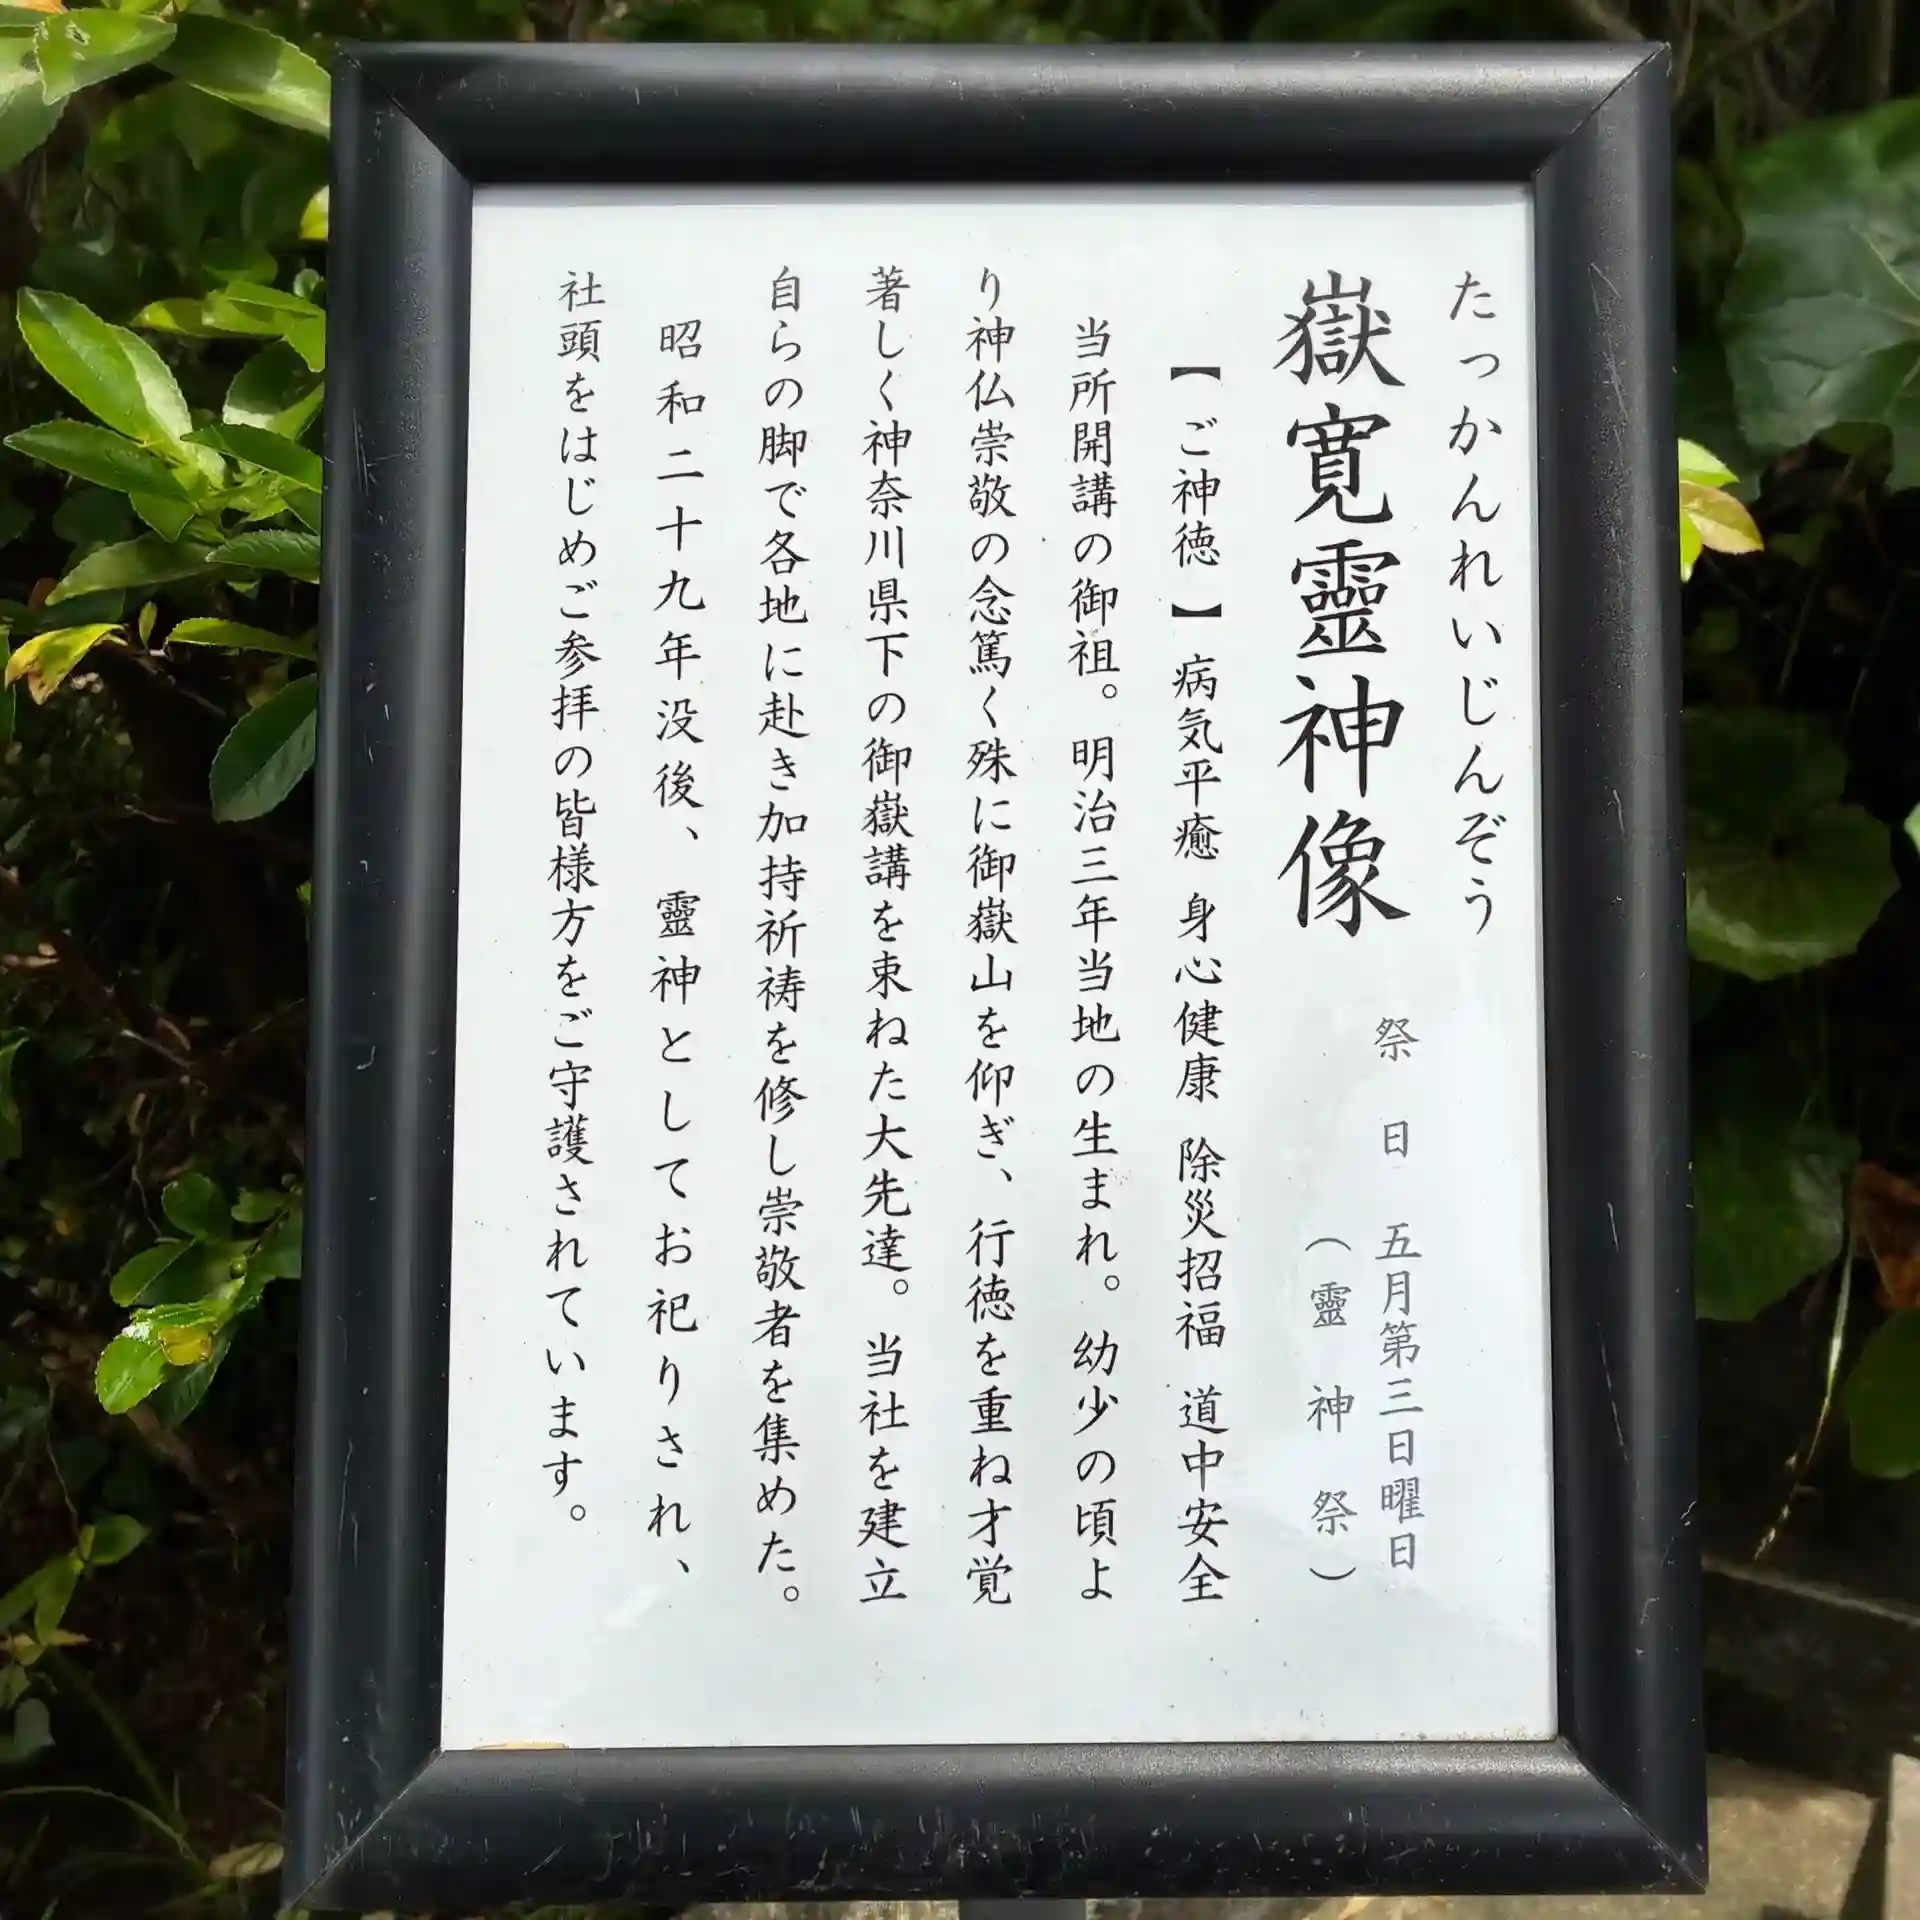 たっかんれいじんぞう
嶽寛靈神像
祭日 五月第三日曜日
（靈神祭）
【ご神徳】病気平癒 身心健康 除災招福 道中安全
当所開講の御祖。明治三年当地の生まれ。幼少の頃よ
り神仏崇敬の念篤く殊に御嶽山を仰ぎ、行徳を重ね才覚
著しく神奈川県下の御嶽講を束ねた大先達。当社を建立
自らの脚で各地に赴き加持祈祷を修し崇敬者を集めた。
昭和二十九年没後、靈神としてお祀りされ、
社頭をはじめご参拝の皆様方をご守護されています。